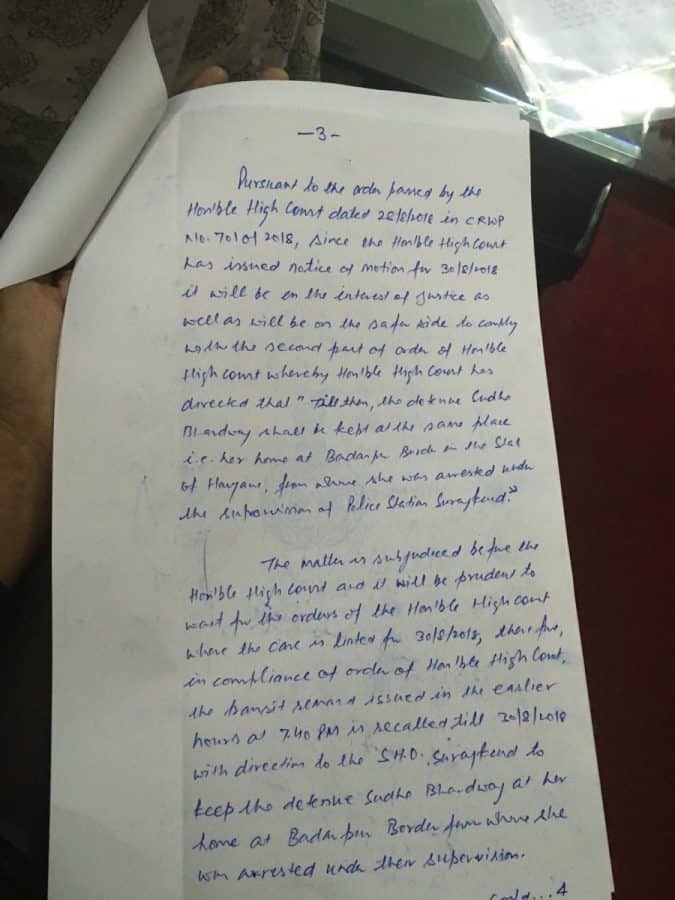 -3-
Pursuant to the order passed by the
Hon'ble High Court dated 28/8/2018 in CRWP
No. 701 of 2018, since the Hon'ble High Court
has issued notice of motion for 30/8/2018
it will be in the interest of justice as
well as will be on the safer side to comply
with the second part of order of Hon'ble
High Court whereby Hon'ble High Court has
directed that "Till then, the detenue Sudha
Bhardwaj shall be kept at the same place
i.e. her home at Badarpur Border in the State
of Haryana, from where she was arrested under
the supervision of Police Station Surajkund."
The matter is subjudiced before the
Hon'ble High Court and it will be prudent to
wait for the orders of the Hon'ble High Court
where the case is listed for 30/8/2018, therefore,
in compliance of order of Hon'ble High Court,
the transit remand issued in the earlier
hours at 7.40 PM is recalled till 30/8/2018
with direction to the S.H.O. Surajkund to
keep the detenue Sudha Bhardwaj at her
home at Badarpur Border from where she
was arrested under their supervision.
Contd...4